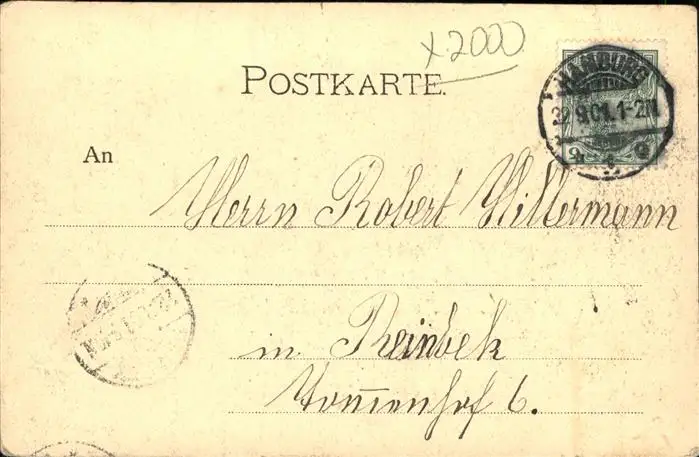 x2000
POSTKARTE.
HAMBURG
22 9.01.1-2N
An
Herrn Robert Hillermann
in Reinbek
6.